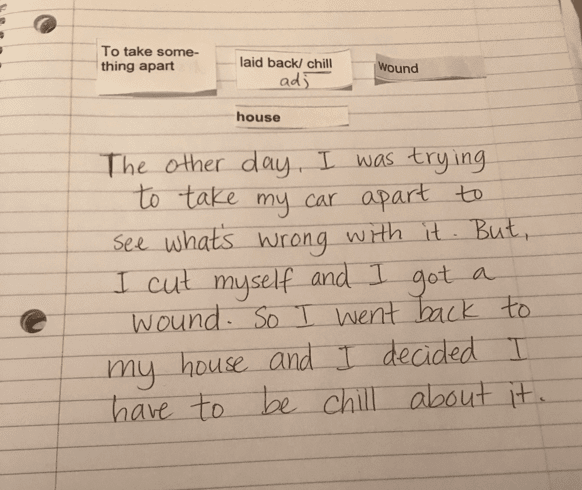 To take some-
thing apart
laid back/ chill
adj
wound
house
The other day, I was trying
to take my car apart to
see what's wrong with it. But,
I cut myself and I got a
wound. So I went back to
my house and I decided I
have to be chill about it.